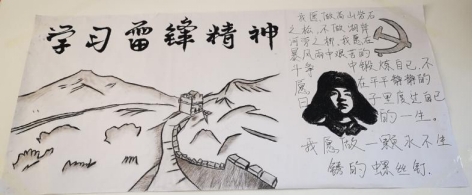 学习雷锋精神
我愿做高山岩石
之松，不做湖岸
河旁之柳，我愿在
暴风雨中艰苦的
斗争中锻炼自己，不
愿在平平静静的
日子里度过自己
的一生。
我愿做一颗永不生
锈的螺丝钉.